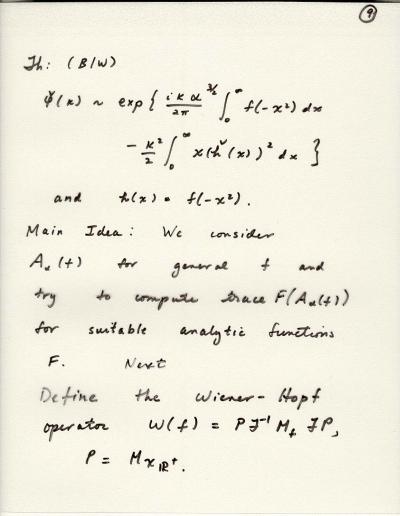 9
Th: (B/W)
φ̌(k) ~ exp{ (i k α^{3/2})/(2π) ∫_0^∞ f(-x²) dx
- k²/2 ∫_0^∞ x(ȟ(x))² dx }
and h(x) = f(-x²).
Main Idea: We consider
A_α(f) for general f and
try to compute trace F(A_α(f))
for suitable analytic functions
F. Next
Define the Wiener-Hopf
operator W(f) = P F⁻¹ M_f F P,
P = M_{χ_{ℝ⁺}}.